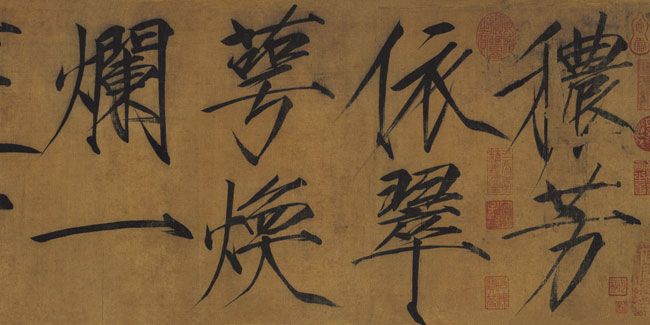 穠芳
依翠
萼煥
爛一